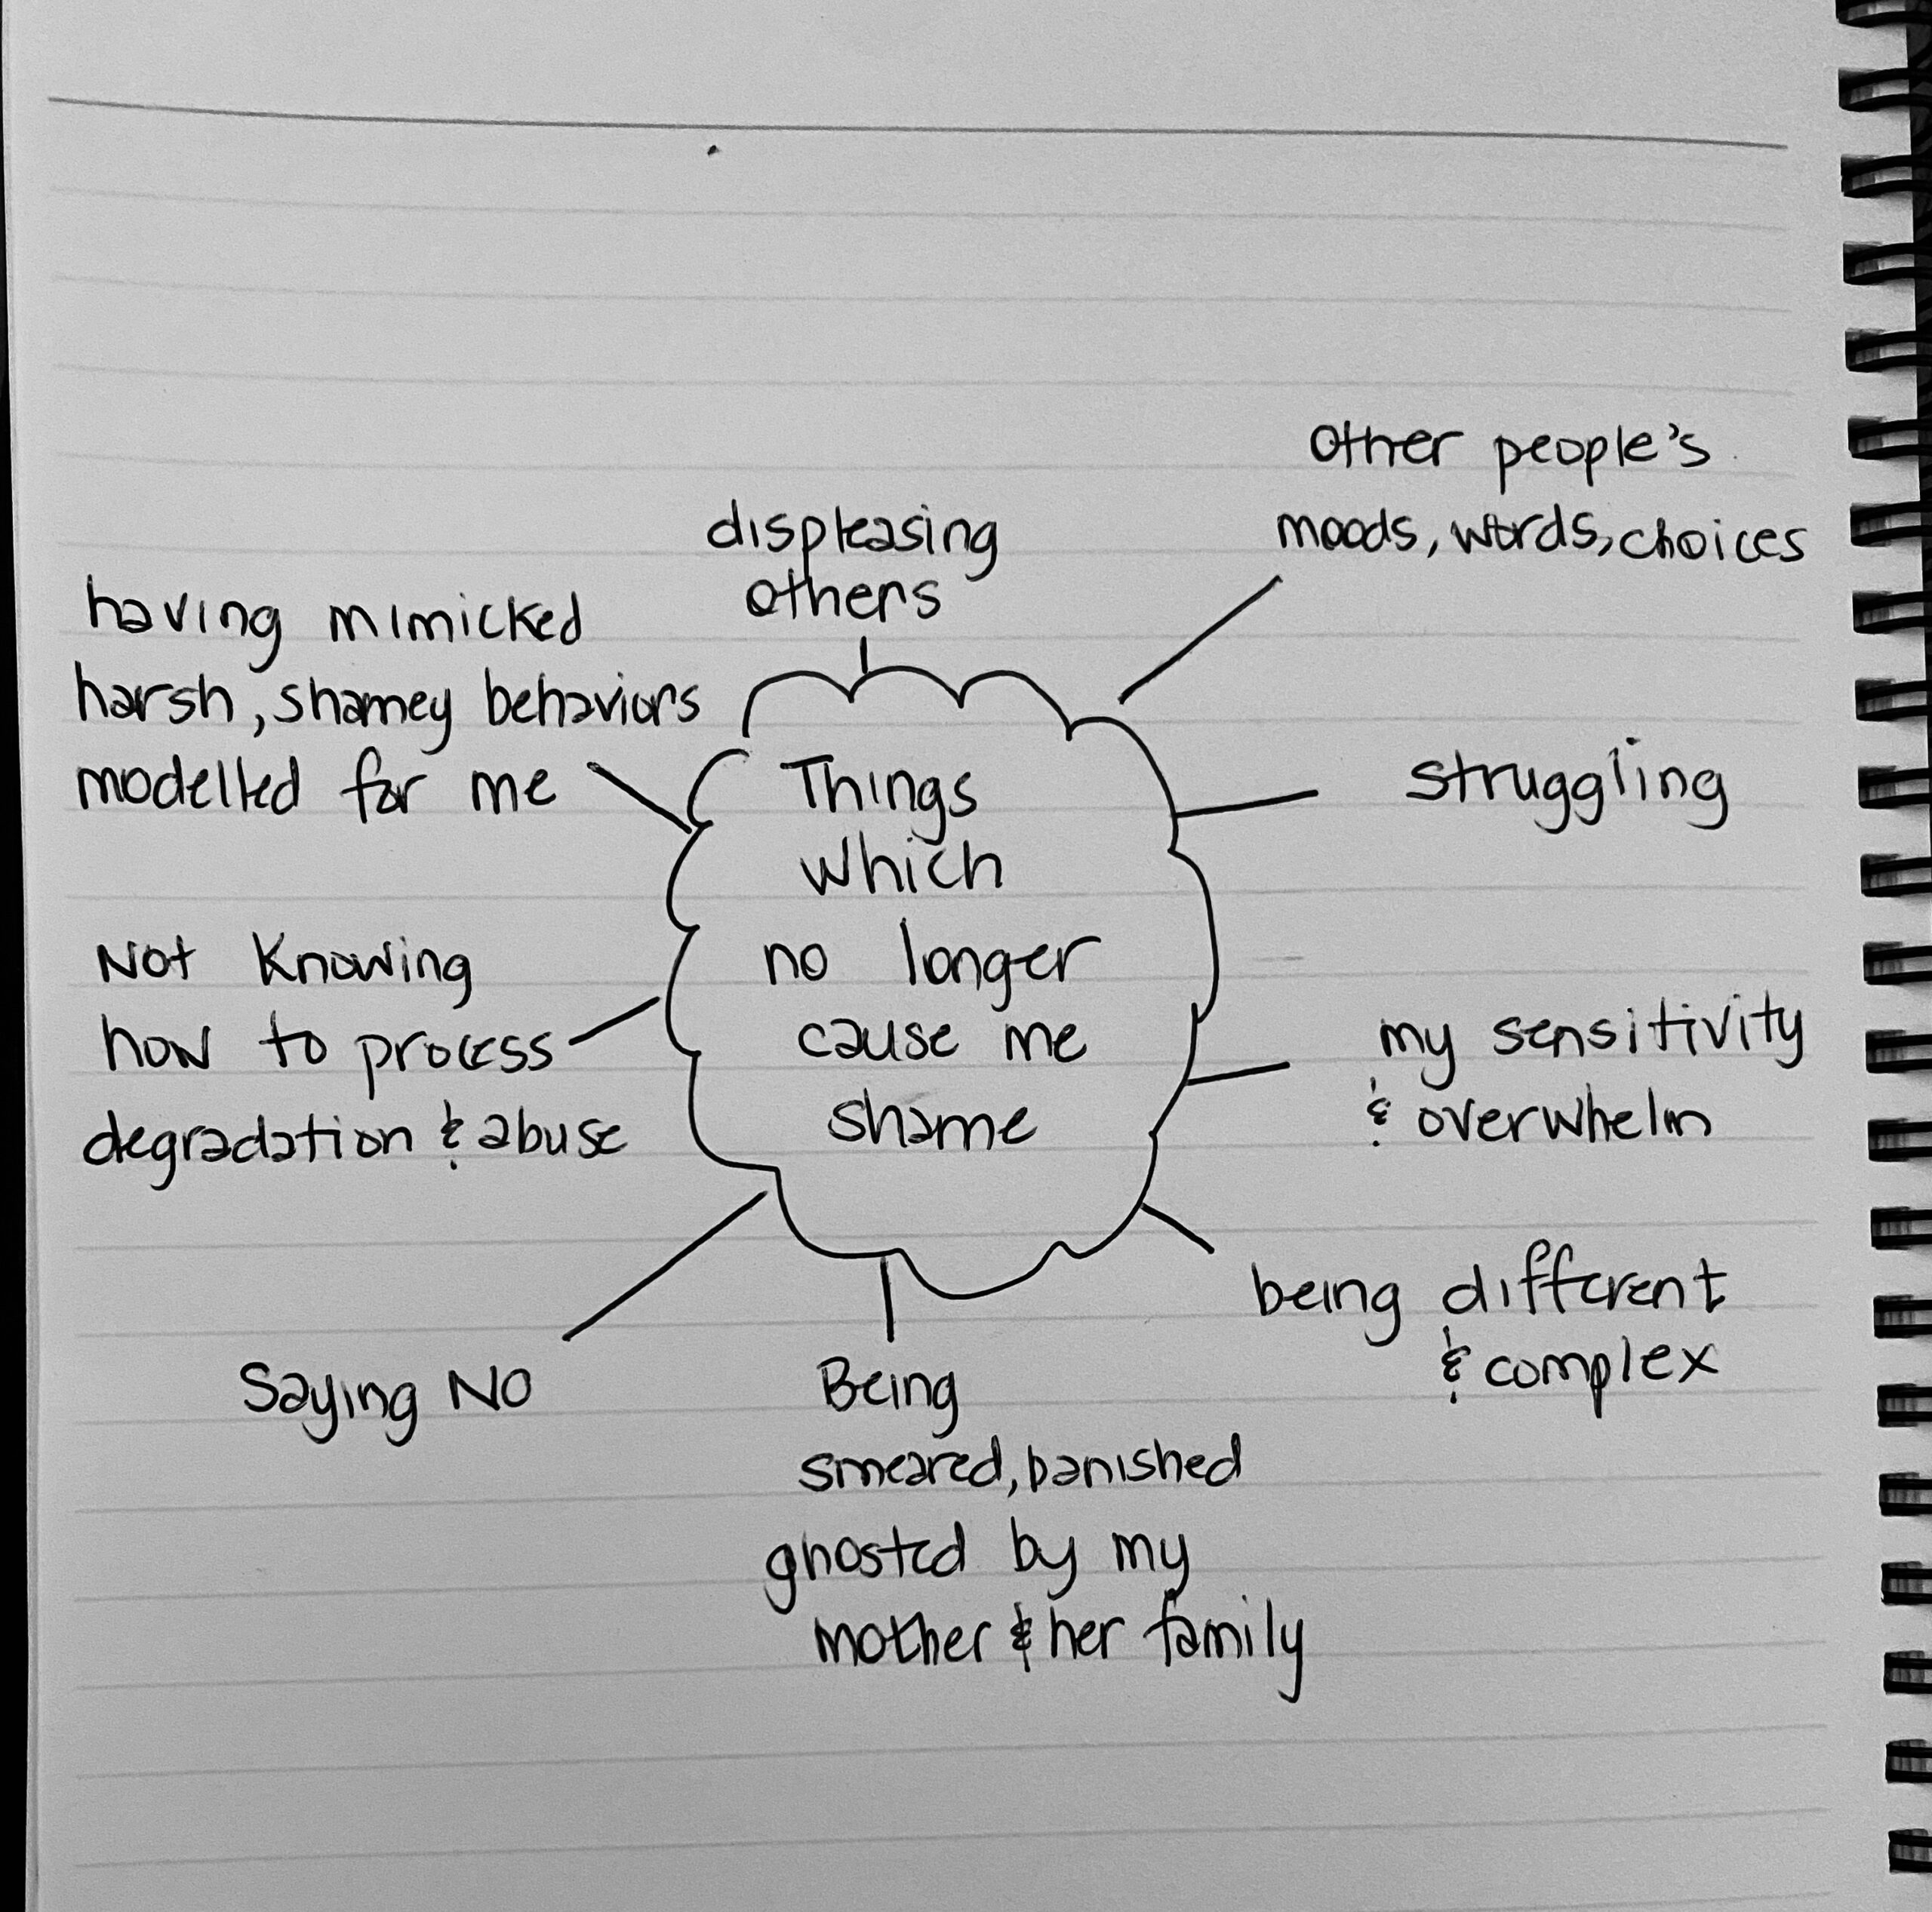 Things
which
no longer
cause me
shame
displeasing
others
other people's
moods, words, choices
struggling
my sensitivity
& overwhelm
being different
& complex
Being
smeared, banished
ghosted by my
mother & her family
Saying NO
Not Knowing
how to process
degradation & abuse
having mimicked
harsh, shamey behaviors
modelled for me